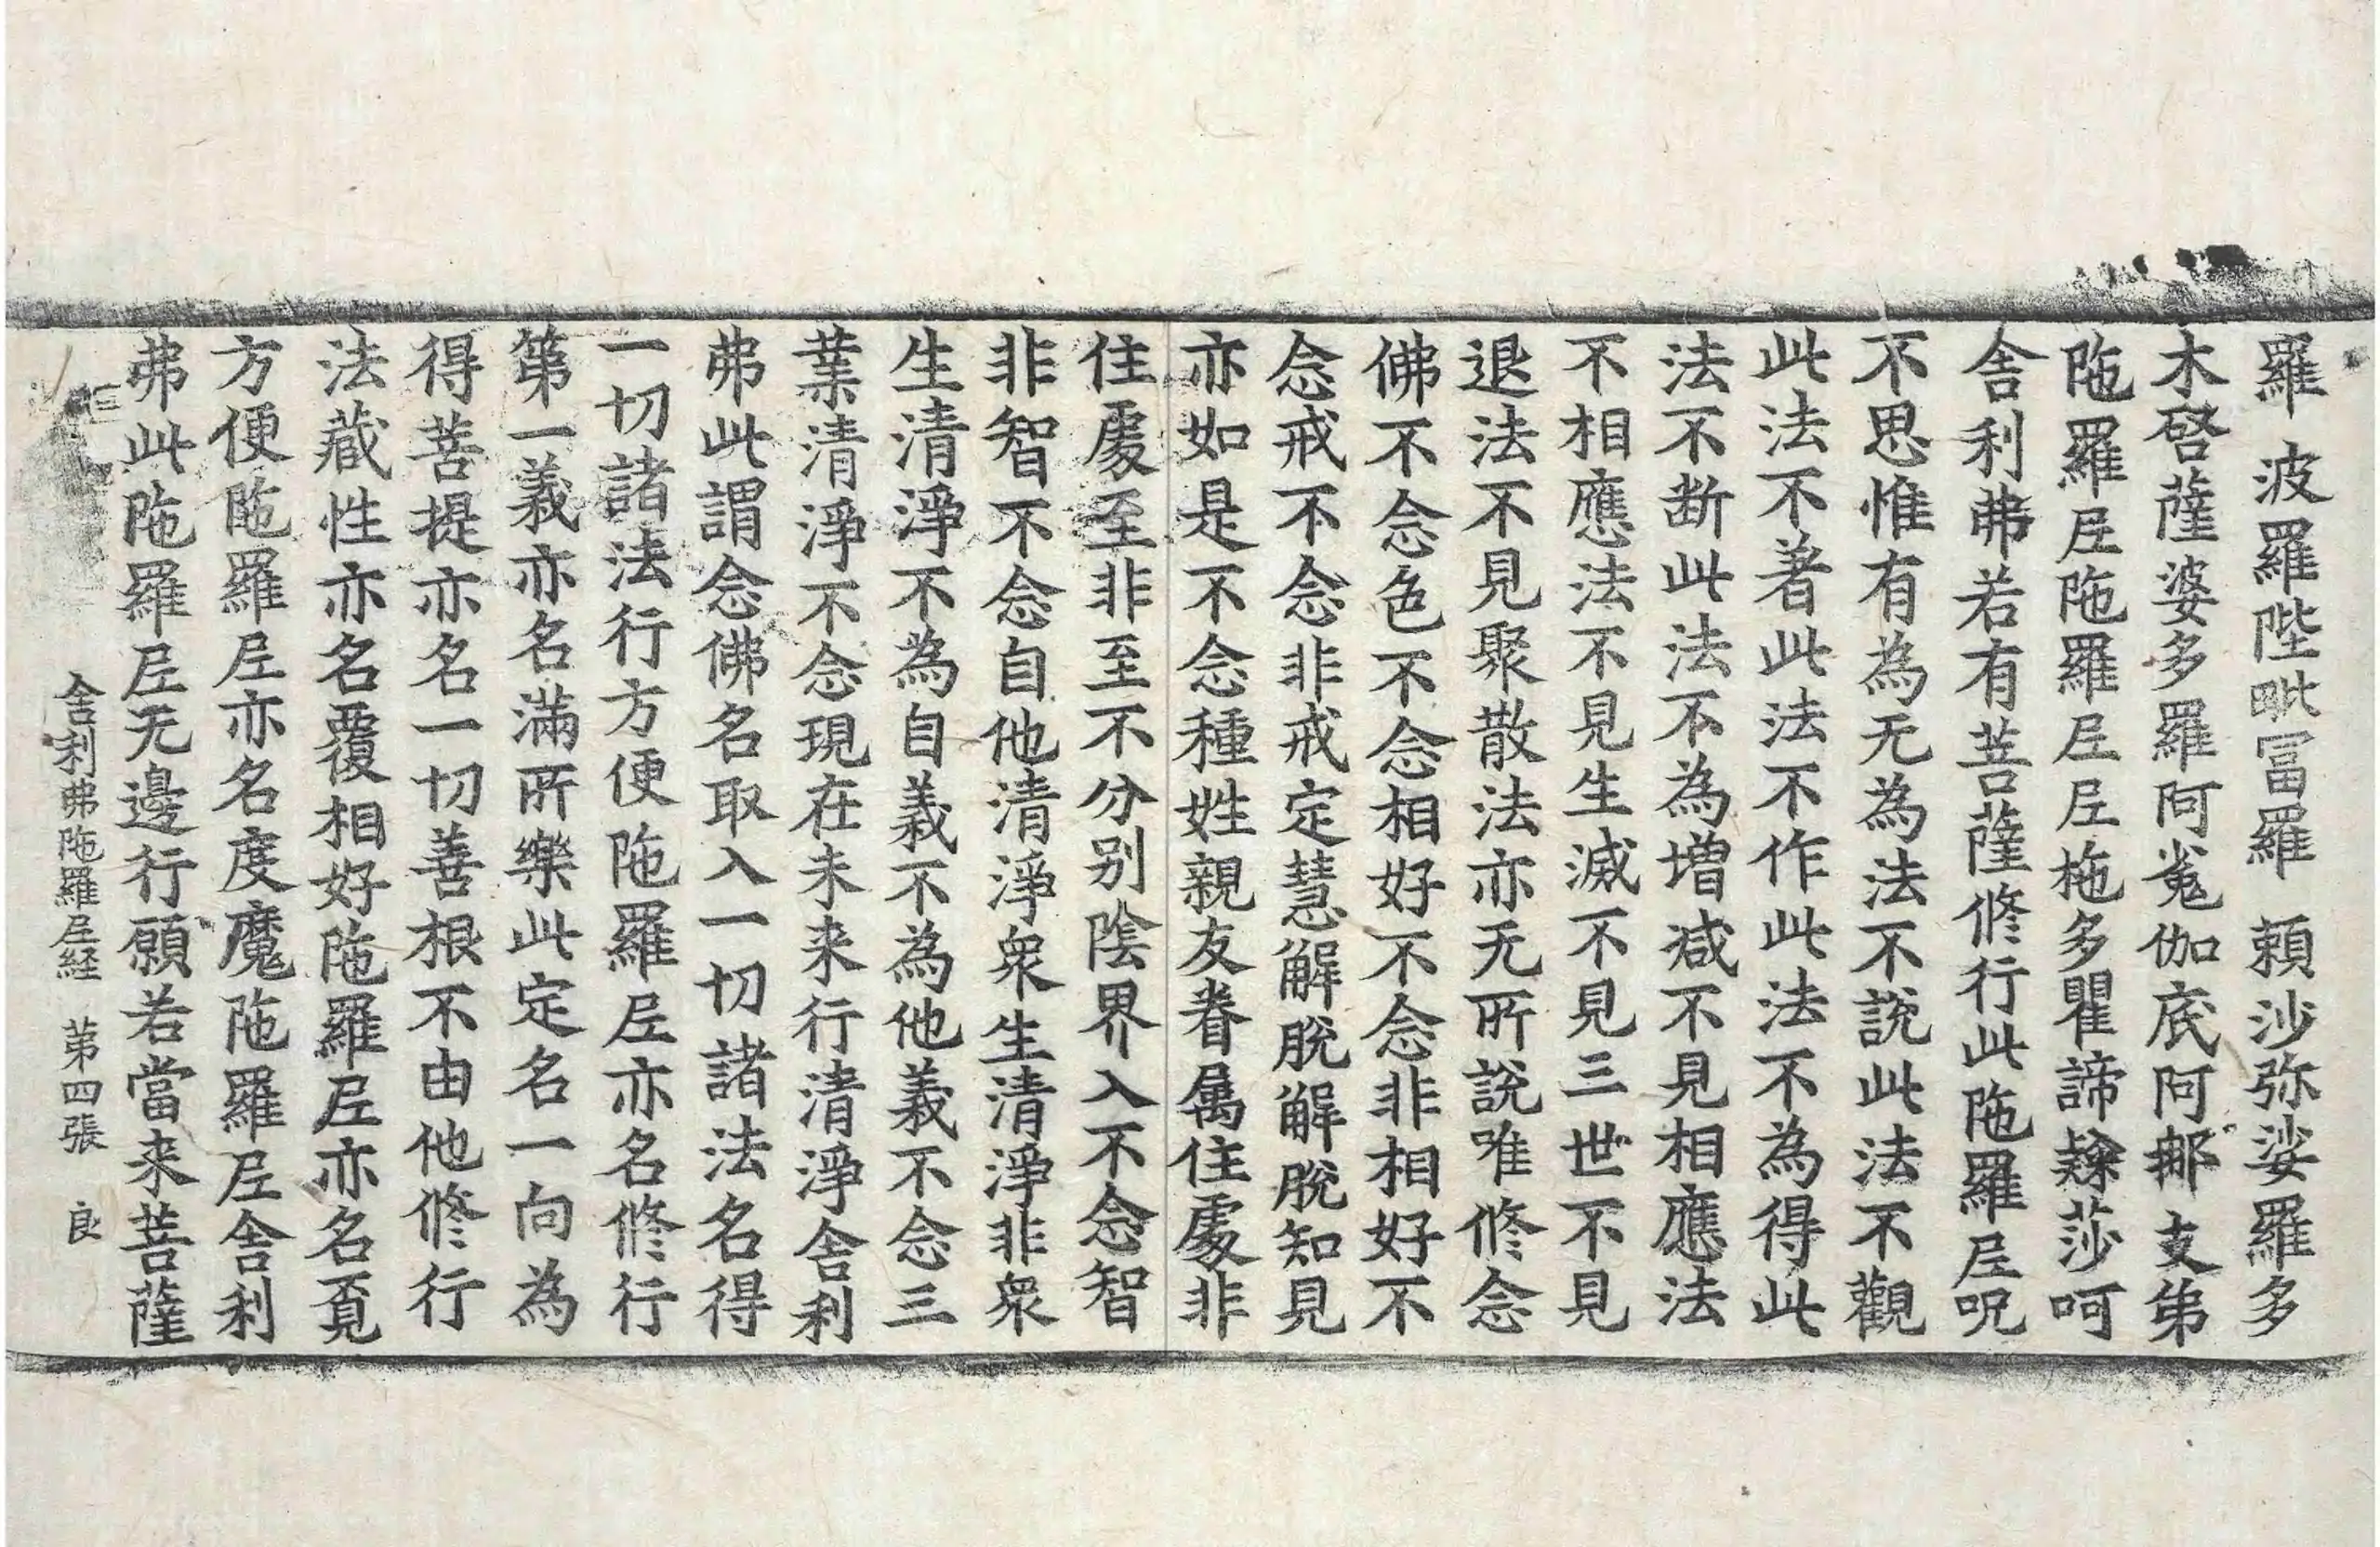 羅 波羅陛毗冨羅 頼沙弥娑羅多
木啓薩婆多羅阿㝹伽底阿𨚗支弟
陁羅𡰱陁羅𡰱𡰱柂多瞿諦𨽻莎呵
舎利弗若有菩薩修行此陁羅𡰱呪
不思惟有為无為法不說此法不觀
此法不著此法不作此法不為得此
法不断此法不為増減不見相應法
不相應法不見生滅不見三世不見
退法不見聚散法亦无所說唯修念
佛不念色不念相好不念非相好不
念戒不念非戒定慧解脫解脫知見
亦如是不念種姓親友眷属住處非
住處至非至不分别陰界入不念智
非智不念自他清淨衆生清淨非衆
生清淨不為自義不為他義不念三
業清淨不念現在未来行清淨舎利
弗此謂念佛名取入一切諸法名得
一切諸法行方便陁羅𡰱亦名修行
第一義亦名滿所樂此定名一向為
得菩提亦名一切善根不由他修行
法藏性亦名覆相好陁羅𡰱亦名覔
方便陁羅𡰱亦名度魔陁羅𡰱舎利
弗此陁羅𡰱无邊行願若當来菩薩
舎利弗陁羅𡰱経 第四張 良